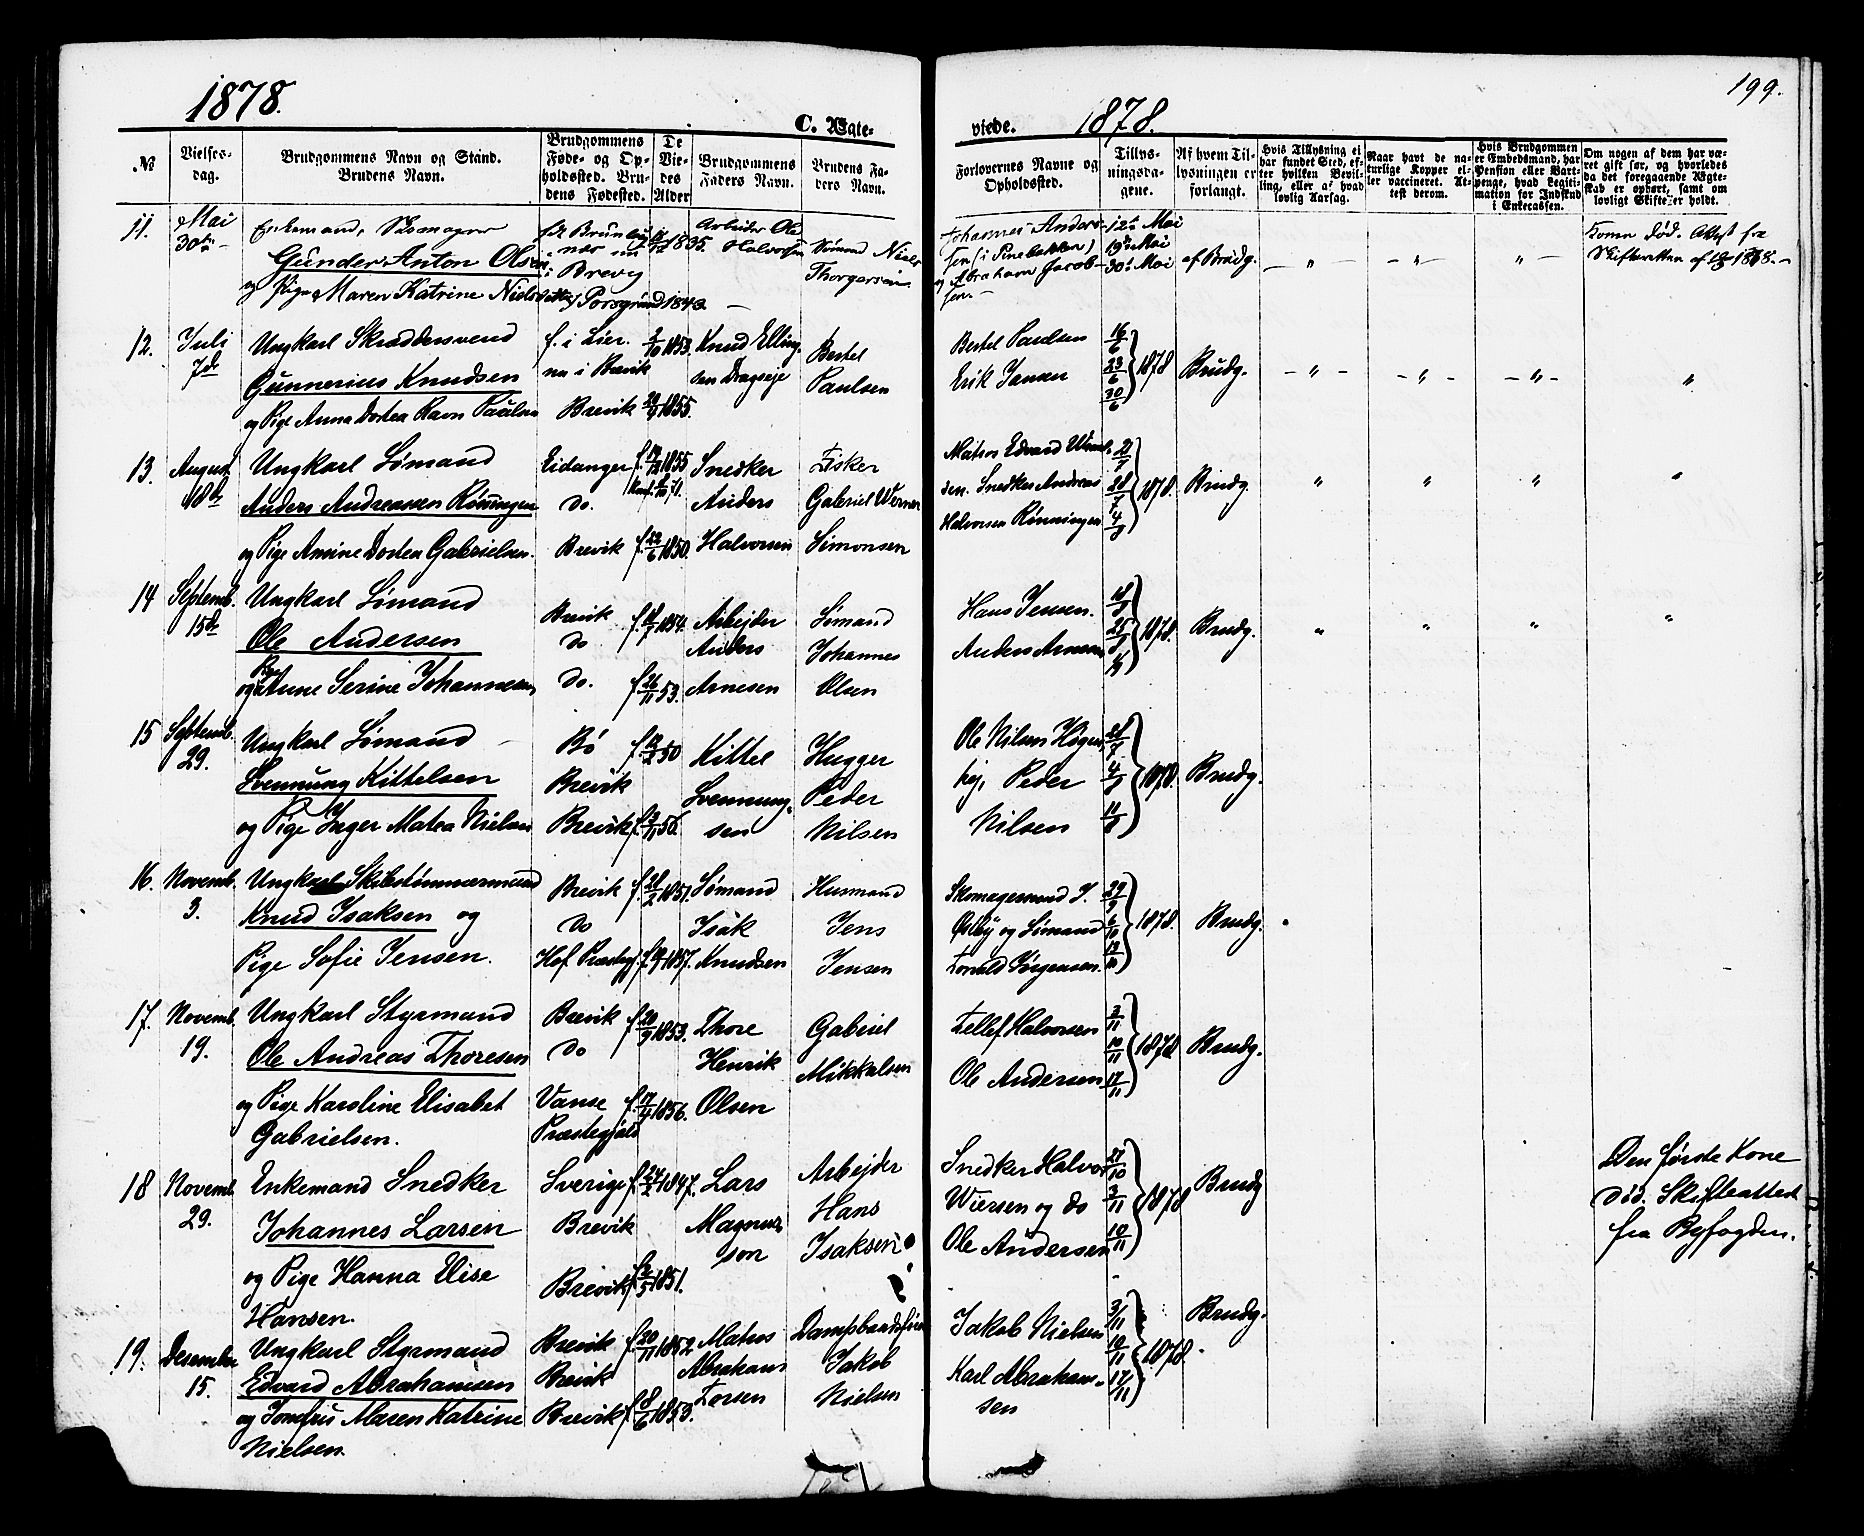 1878.
C. Ægte-
№
Vielses-
dag.
Brudgommens Navn og Stand.
Brudens Navn.
Brudgommens
Føde- og Op-
holdssted. Bru-
dens Fødested.
De
Vie-
des
Alder
Brudgommens
Faders Navn.
Brudens Fa-
ders Navn.
11.
Mai
30te
Enkemand, Skomager
Gunder Anton Olsen
og Pige Maren Katrine Nielsdatter
nær nu
i Brevig
Porsgrund 1843
1835.
Arbeider Ole
Halvorsen
Sømand Niels
Thorgersen
12.
Juli
7de
Ungkarl Skræddersvend
Gunnerius Knudsen
og Pige Anna Dortea Ravn Paulsen
f. i Lier.
nu i Brevik
Brevik
2/10 1853.
1855.
Knud Elling-
sen Dragseje
Bertel
Paulsen
13.
August
18de
Ungkarl Sømand
Anders Andreassen Rønningen
og Pige Amine Dortea Gabrielsen.
Eidanger
do.
Brevik
1855
f. 22/6 1850.
Snedker
Anders
Halvorsen
Fisker
Gabriel Werner
Simonsen
14
Septemb.
15de
Ungkarl Sømand
Ole Andersen
og Pige Anne Serine Johannesen
Brevik
do
do.
1854.
f. 26/11 53.
Arbejder
Anders
Arnesen
Sømand
Johannes
Olsen
15
Septemb.
29.
Ungkarl Sømand
Svennung Kittelsen
og Pige Inger Matea Nielsen
Bø
Brevik
Brevik
50
Kittel
Svennung-
sen
Hugger
Peder
Nilsen
16.
Novemb.
3.
Ungkarl Skibstømmermand
Knud Isaksen og
Pige Sofie Jensen.
Brevik
do
Hof Præstegj.
f. 28/2 1851.
1857.
Sømand
Isak
Knudsen
Husmand
Jens
Jensen
17.
Novemb.
19.
Ungkarl Styrmand
Ole Andreas Thoresen
og Pige Karoline Elisabet
Gabrielsen.
Brevik
do
Vanse
Præstegjeld
f. 20/9 1853.
f. 17/4 1856.
Thore
Henrik
Olsen
Gabriel
Mikkalsen
18
Novemb.
29.
Enkemand Snedker
Johannes Larsen
og Pige Hanna Elise
Hansen.
Sverige
Brevik
Brevik
f. 24/2 1847.
f. 2/5 1851.
Lars
Magnus-
son
Arbejder
Hans
Isaksen
19.
Desember
15.
Ungkarl Styrmand
Edvard Abrahamsen
og Jomfru Maren Katrine
Nielsen.
Brevik
Brevik
Brevik
f. 20/11 1852
f. 8/6 1853.
Matros
Abraham
Larsen
Dampbaadsfører
Jakob
Nielsen
199.
viede.
1878.
Forlovernes Navne og
Opholdssted.
Tillys-
ningsda-
gene.
Af hvem Til-
lysningen er
forlangt.
Hvis Tillysning ei
har fundet Sted, ef-
ter hvilken Bevil-
ling, eller af hvad
lovlig Aarsag.
Naar havt de na-
turlige Kopper el-
ler vaccineret. At-
test derom.
Hvis Brudgommen
er Embedsmand, har
Pension eller Vart-
penge, hvad Legiti-
mation for Indskud
i Enkecassen.
Om nogen af dem har væ-
ret gift før, og hvorledes
da det foregaaende Ægte-
skab er ophørt, samt om
lovligt Skifte er holdt.
Johannes Anders-
sen (i Pinebakken)
og Abraham Jacob-
sen.
12te Mai
19de Mai
30te Mai
af Brudg.
- „ -
Konen død. Attest fra
Skifteretten af
Bertel Paulsen
Erik Jansen
16/6
23/6
30/6
1878
Brudg.
- „ -
„
Matros Edvard
sen. Snedker Andreas
Halvorsen Rønningen
21/7
28/7
4/8
1878.
Brudg.
„
Hans Jensen.
Anders Arnesen
18/8
25/8
1878.
Brudg.
„
Ole Nilsen Høgen-
hej, Peder
Nilsen
28/7
4/8
11/8
1878.
Brudg.
Skomagersvend J.
Østby og Sømand
Jørgensen.
29/9
6/10
13/10
1878.
Brudg.
Tellef Halvorsen
Ole Andersen
3/11
10/11
17/11
1878
Brudg.
Snedker Halvor
Wiersen og do
Ole Andersen
27/10
3/11
10/11
1878
Brudg
Den første Kone
død. Skifteattest
fra Byfogden.
Jakob Nielsen
Karl Abraham-
sen
3/11
10/11
17/11
1878.
Brudg.